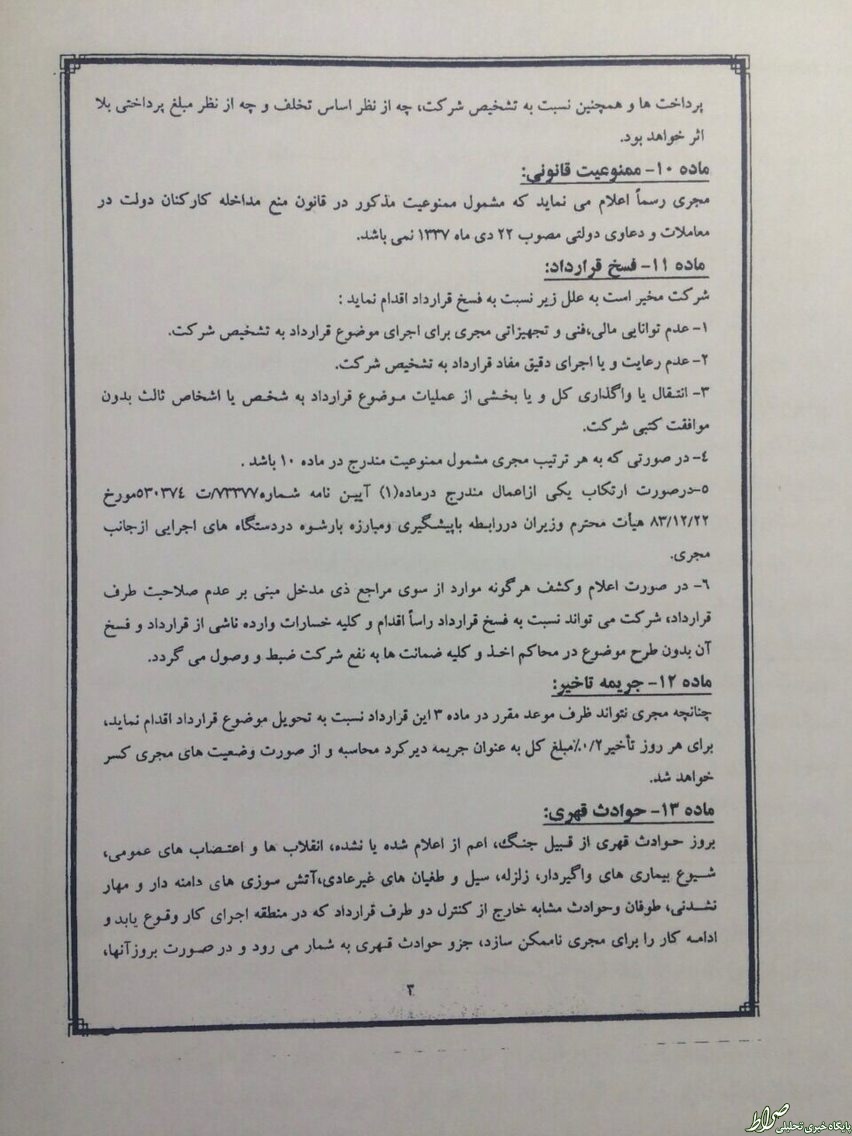 پرداخت ها و همچنین نسبت به تشخیص شرکت، چه از نظر اساس تخلف و چه از نظر مبلغ پرداختی بلا
اثر خواهد بود.
ماده ۱۰- ممنوعیت قانونی:
مجری رسماً اعلام می نماید که مشمول ممنوعیت مذکور در قانون منع مداخله کارکنان دولت در
معاملات و دعاوی دولتی مصوب ۲۲ دی ماه ۱۳۳۷ نمی باشد.
ماده ۱۱- فسخ قرارداد:
شرکت مخیر است به علل زیر نسبت به فسخ قرارداد اقدام نماید :
۱- عدم توانایی مالی،فنی و تجهیزاتی مجری برای اجرای موضوع قرارداد به تشخیص شرکت.
۲- عدم رعایت و یا اجرای دقیق مفاد قرارداد به تشخیص شرکت.
۳- انتقال یا واگذاری کل و یا بخشی از عملیات موضوع قرارداد به شخص یا اشخاص ثالث بدون
موافقت کتبی شرکت.
۴- در صورتی که به هر ترتیب مجری مشمول ممنوعیت مندرج در ماده ۱۰ باشد .
۵-درصورت ارتکاب یکی ازاعمال مندرج درماده(۱) آیین نامه شماره۷۳۳۷۷/ت ۵۳۰۳۷۴مورخ
۸۳/۱۲/۲۲ هیأت محترم وزیران دررابطه باپیشگیری ومبارزه بارشوه دردستگاه های اجرایی ازجانب
مجری.
۶- در صورت اعلام وکشف هرگونه موارد از سوی مراجع ذی مدخل مبنی بر عدم صلاحیت طرف
قرارداد، شرکت می تواند نسبت به فسخ قرارداد راساً اقدام و کلیه خسارات وارده ناشی از قرارداد و فسخ
آن بدون طرح موضوع در محاکم اخذ و کلیه ضمانت ها به نفع شرکت ضبط و وصول می گردد.
ماده ۱۲- جریمه تاخیر:
چنانچه مجری نتواند ظرف موعد مقرر در ماده ۳ این قرارداد نسبت به تحویل موضوع قرارداد اقدام نماید،
برای هر روز تأخیر۰/۲٪مبلغ کل به عنوان جریمه دیرکرد محاسبه و از صورت وضعیت های مجری کسر
خواهد شد.
ماده ۱۳- حوادث قهری:
بروز حوادث قهری از قبیل جنگ، اعم از اعلام شده یا نشده، انقلاب ها و اعتصاب های عمومی،
شیوع بیماری های واگیردار، زلزله، سیل و طغیان های غیرعادی،آتش سوزی های دامنه دار و مهار
نشدنی، طوفان وحوادث مشابه خارج از کنترل دو طرف قرارداد که در منطقه اجرای کار وقوع یابد و
ادامه کار را برای مجری ناممکن سازد، جزو حوادث قهری به شمار می رود و در صورت بروزآنها،
۳
صراط
پایگاه خبری تحلیلی